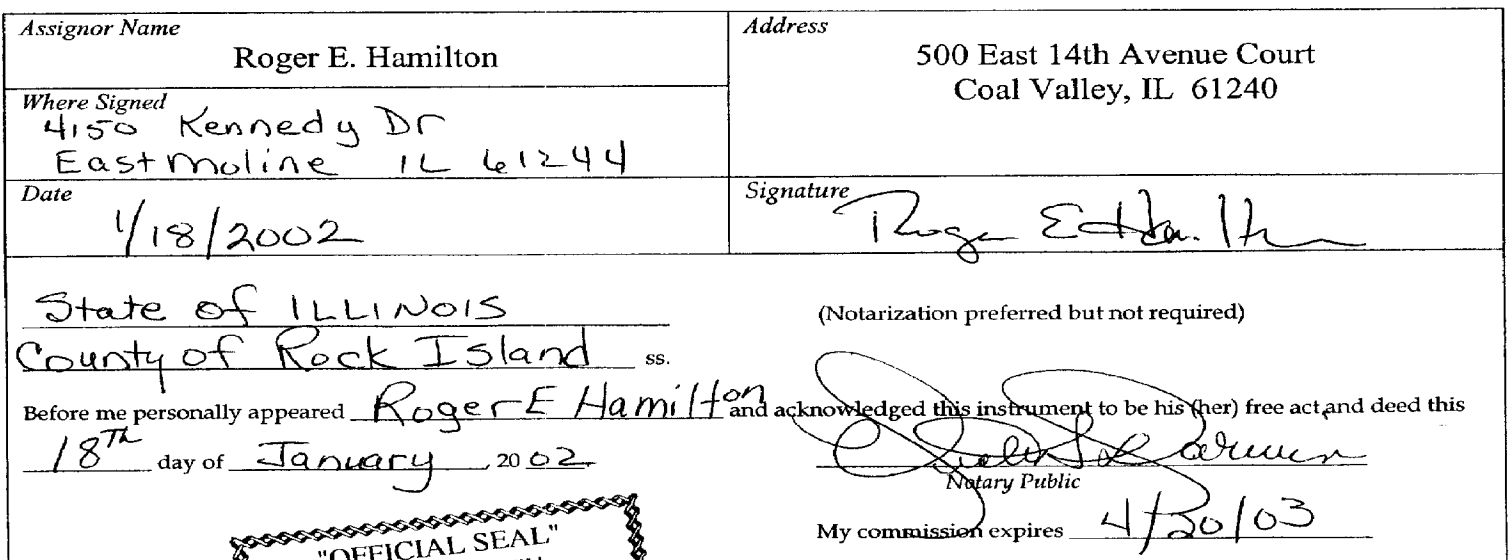 Assignor Name
Roger E. Hamilton
Address
500 East 14th Avenue Court
Coal Valley, IL 61240
Where Signed
4150 Kennedy Dr
East Moline IL 61244
Date
1/18/2002
Signature
Roger E Hamilton
State of ILLINOIS
County of Rock Island ss.
(Notarization preferred but not required)
Before me personally appeared Roger E Hamilton and acknowledged this instrument to be his (her) free act and deed this
18Th day of January, 2002
Notary Public
My commission expires 4/30/03
"OFFICIAL SEAL"